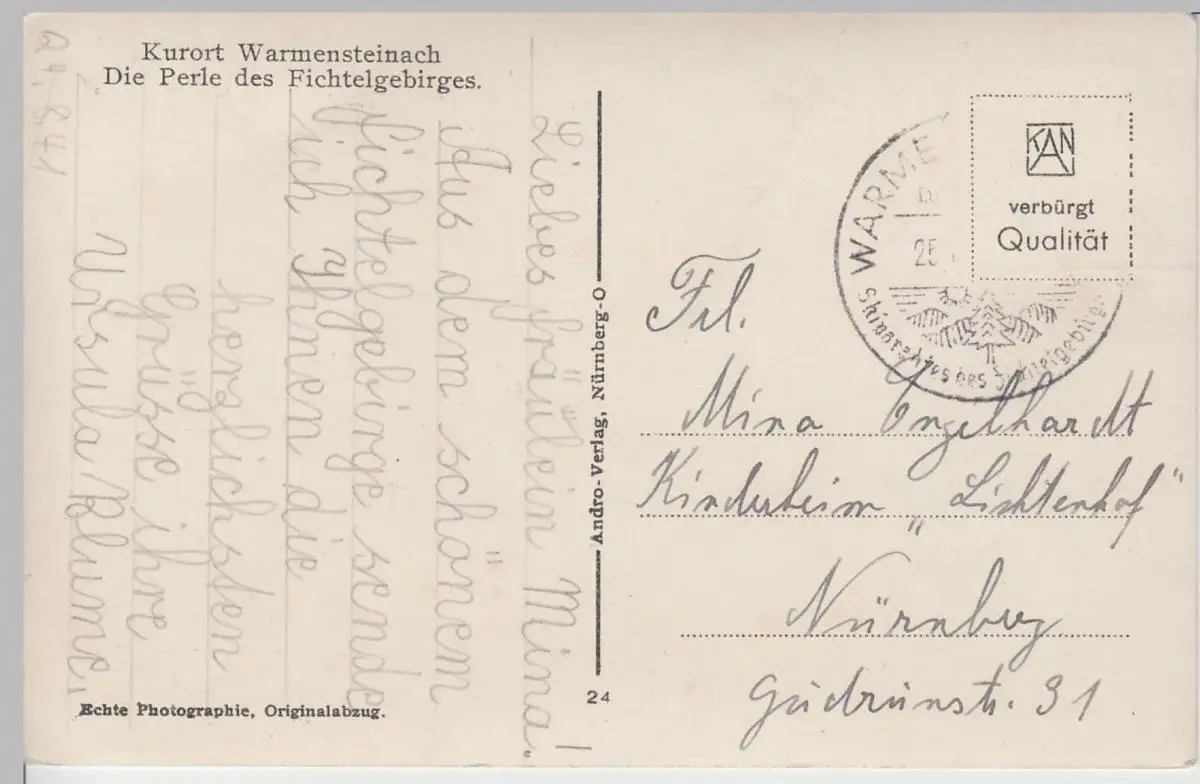 Kurort Warmensteinach
Die Perle des Fichtelgebirges.
24.8.41
Liebes Fräulein Mina!
Aus dem schönem
Fichtelgebirge sende
ich Ihnen die
herzlichsten
Grüsse ihre
Ursula Blume.
Echte Photographie, Originalabzug.
Andro-Verlag, Nürnberg-O
24
KAN
verbürgt
Qualität
WARME
25
Skiparadies des Fichtelgebirges
Frl.
Mina Engelhardt
Kinderheim „Lichtenhof"
Nürnberg
Gudrunstr. 31